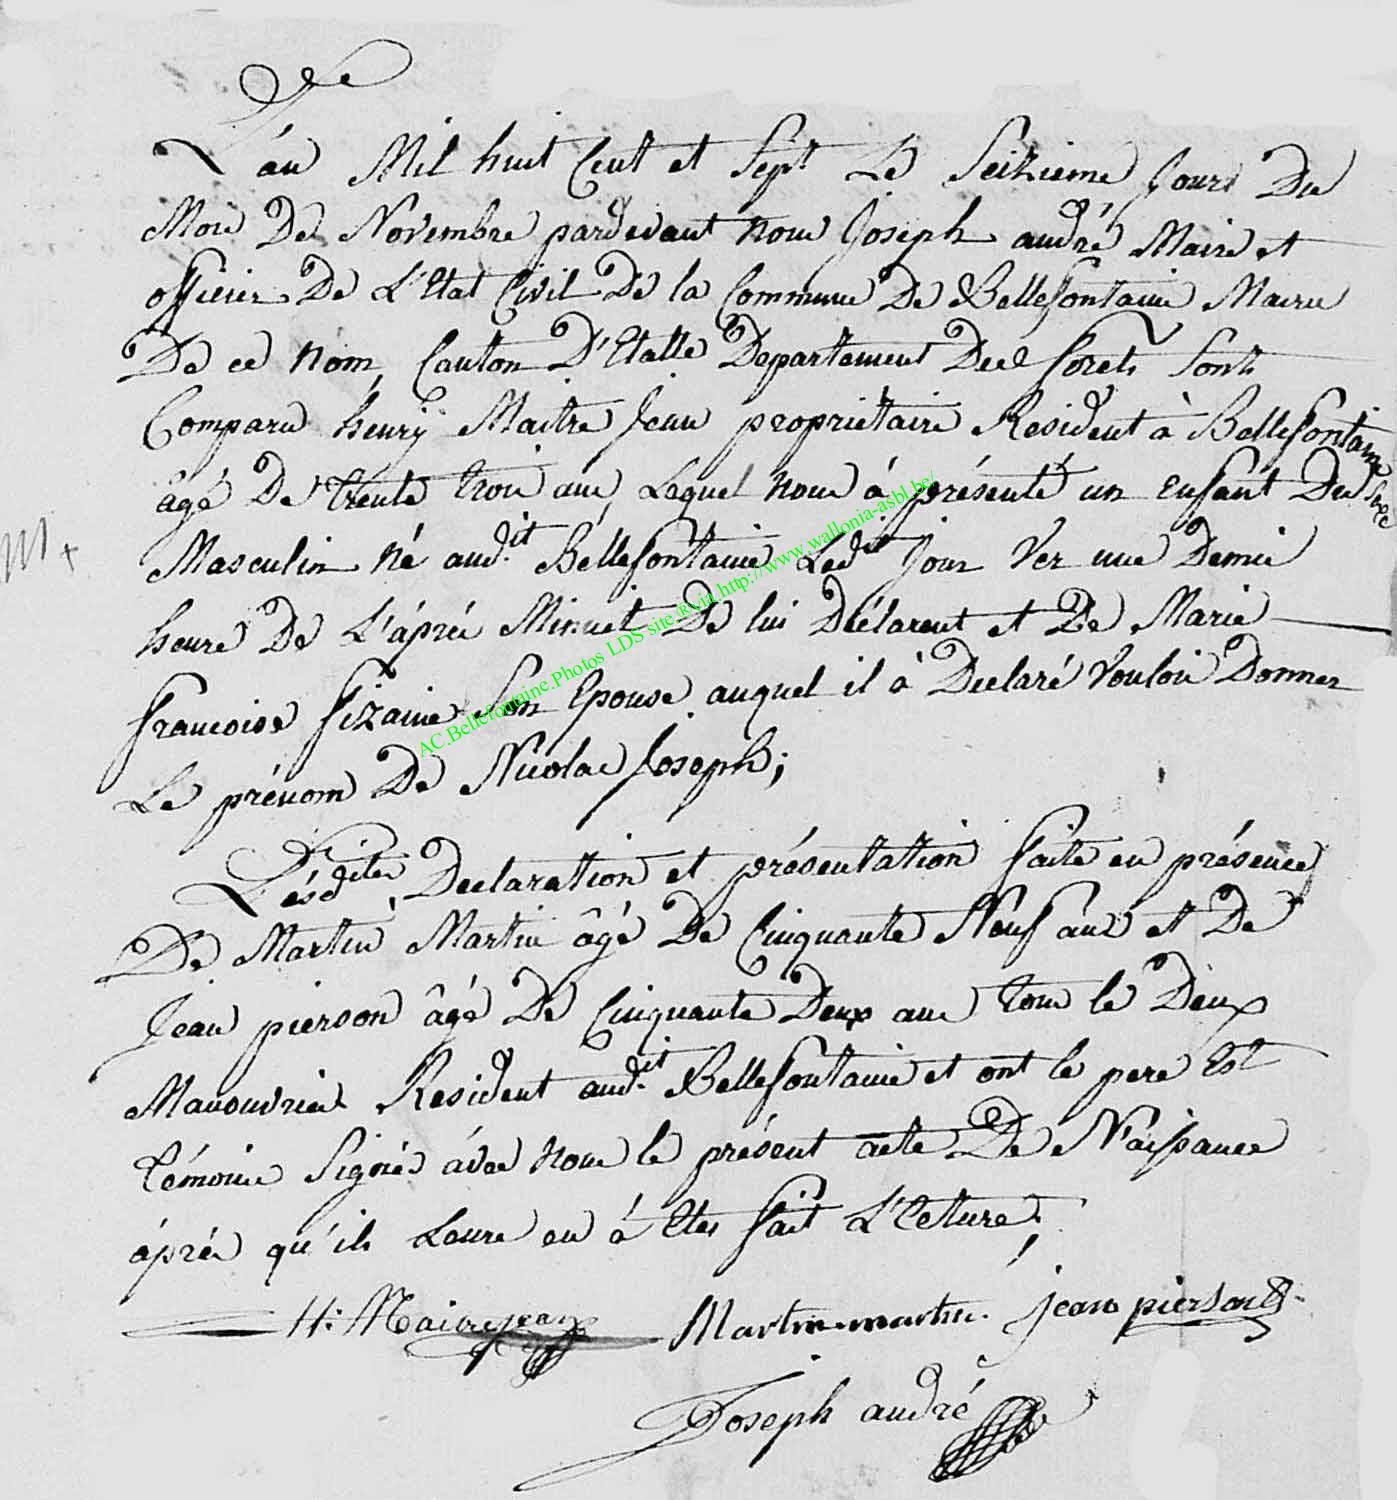 L'an Mil huit Cent et Sept Le Seizieme Jours Du
Mois De Novembre pardevant nous Joseph andré Maire et
officier De L'Etat Civil De la Commune De Bellefontaine Mairie
De ce nom, Canton D'Etalle Departement Des forets Sont
Comparu henrÿ Maitre Jean proprietaire Resident à Bellefontaine
âgé De trente trois ans, Lequel nous á présenté un enfant Du Sexe
Masculin né aud.it Bellefontaine Led.it Jour Ver une Demie
heure De L'áprés Minuit De lui Déclarent et De Marie
francoise fizaine Son Epouse auquel il à Declaré Vouloir Donner
Le prénom De Nicolas Joseph;
L'ésdites Declaration et présentation faite en présence
De Martin Martin âgé De Cinquante Neuf ans et De
Jean pierson âgé De Cinquante Deux ans tous le Deux
Manouvrier Resident aud.it Bellefontaine et ont le pere Est
témoins Signés ávec nous le présent acte De Naissance
áprés qu'ils Leurs en á Etes fait L'Ecture;
H: Maitrejean Martin martin. jean pierson
Joseph andré
AC.Bellefontaine.Photos LDS site./kvia.http://www.wallonia-asbl.be/